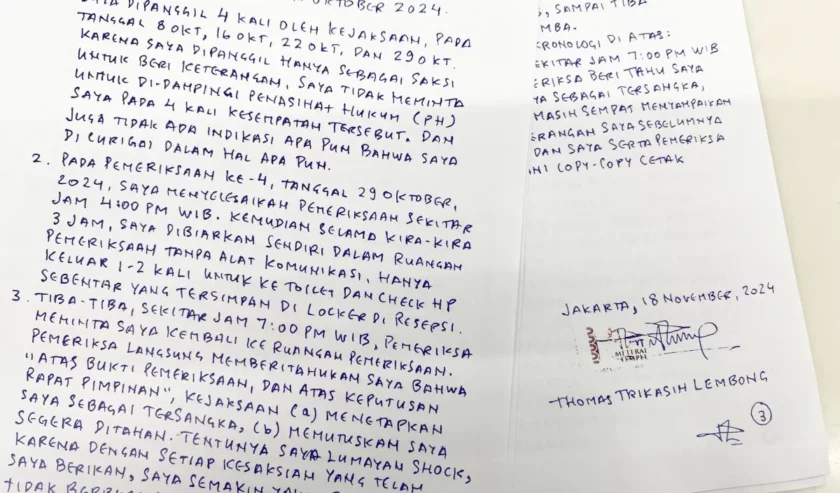 OKTOBER 2024.
DIPANGGIL 4 KALI OLEH KEJAKSAAN, PADA
TANGGAL 8 OKT, 16 OKT, 22 OKT, DAN 29 OKT.
KARENA SAYA DIPANGGIL HANYA SEBAGAI SAKSI
UNTUK BERI KETERANGAN, SAYA TIDAK MEMINTA
UNTUK DI-DAMPINGI PENASIHAT HUKUM (PH)
SAYA PADA 4 KALI KESEMPATAN TERSEBUT. DAN
JUGA TIDAK ADA INDIKASI APA PUN BAHWA SAYA
DI CURIGAI DALAM HAL APA PUN.
2. PADA PEMERIKSAAN KE-4, TANGGAL 29 OKTOBER,
2024, SAYA MENYELESAIKAN PEMERIKSAAN SEKITAR
JAM 4:00 PM WIB. KEMUDIAN SELAMA KIRA-KIRA
3 JAM, SAYA DIBIARKAN SENDIRI DALAM RUANGAN
PEMERIKSAAN TANPA ALAT KOMUNIKASI. HANYA
KELUAR 1-2 KALI UNTUK KE TOILET DAN CHECK HP
SEBENTAR YANG TERSIMPAN DI LOCKER DI RESEPSI.
3. TIBA-TIBA, SEKITAR JAM 7:00 PM WIB, PEMERIKSA
MEMINTA SAYA KEMBALI KE RUANGAN PEMERIKSAAN.
PEMERIKSA LANGSUNG MEMBERITAHUKAN SAYA BAHWA
"ATAS BUKTI PEMERIKSAAN, DAN ATAS KEPUTUSAN
RAPAT PIMPINAN", KEJAKSAAN (a) MENETAPKAN
SAYA SEBAGAI TERSANGKA, (b) MEMUTUSKAN SAYA
SEGERA DITAHAN. TENTUNYA SAYA LUMAYAN SHOCK,
KARENA DENGAN SETIAP KESAKSIAN YANG TELAH
SAYA BERIKAN, SAYA SEMAKIN
TIDAK
, SAMPAI TIBA
MBA.
RONOLOGI DI ATAS:
EKITAR JAM 7:00 PM WIB
ERIKSA BERI TAHU SAYA
YA SEBAGAI TERSANGKA,
MASIH SEMPAT MENYAMPAIKAN
ERANGAN SAYA SEBELUMNYA
DAN SAYA SERTA PEMERIKSA
NI COPY-COPY CETAK
JAKARTA, 18 NOVEMBER, 2024
METERAI
TEMPEL
THOMAS TRIKASIH LEMBONG
3